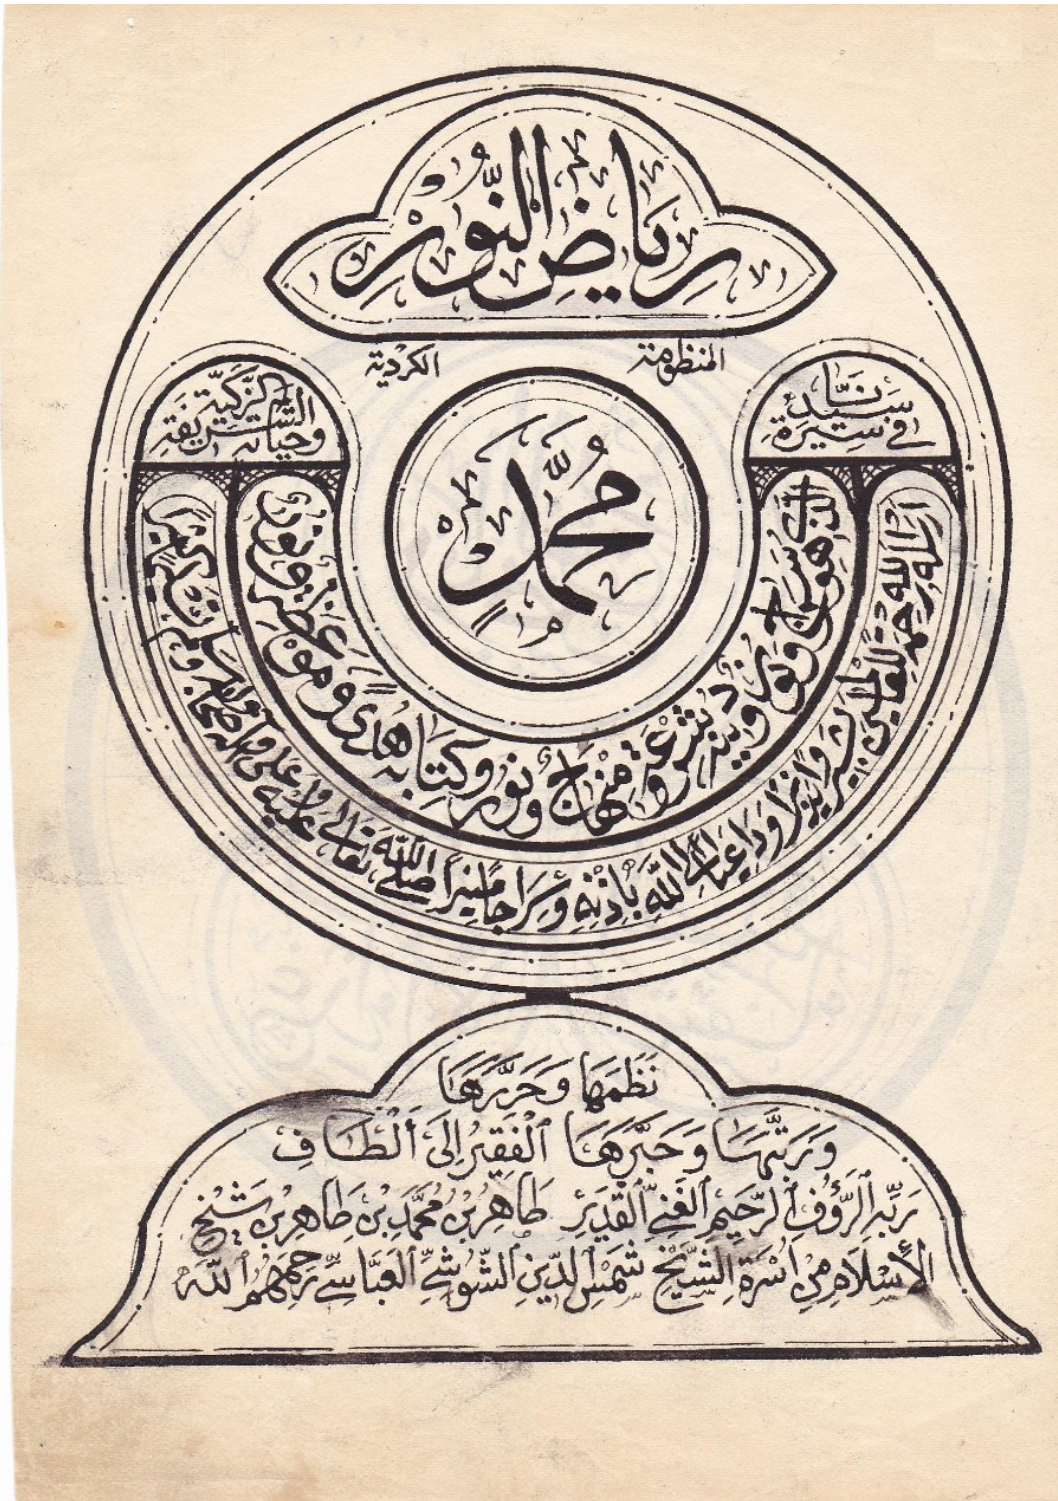 رِيَاضُ النُّوْرِ
المنظومة
الكردية
في سيرة
سيدنا
محمّد
وحياته الشريفة
الزكيّة
الذي هو سراج وهاج ودين وشرعة ومنهاج ونور وكتاب هدى وموعظة
أرسله الله رحمة للعالمين بشيرا ونذيرا وداعيا إلى الله بإذنه وسراجا منيرا صلى الله تعالى عليه وعلى آله وصحابه وسلم
نَظَمَهَا وَحَرَّرَهَا
وَرَتَّبَهَا وَحَبَّرَهَا اَلْفَقِيْرُ اِلَى اَلْطَافِ
رَبِّهِ الرَّؤُفِ الرَّحِيْمِ الغَنِيِّ القَدِيْرِ طَاهِرُ بْنُ مُحَمَّدِ بْنِ طَاهِرِ بْنِ شَيْخِ
الْإِسْلَامِ مِنْ اُسْرَةِ الشَّيْخِ شَمْسِ الدِّيْنِ الشَّوْشِيِّ العَبَّاسِيِّ رَحِمَهُمُ اللهُ